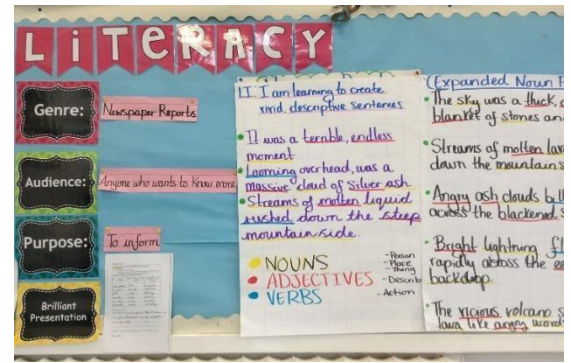 LiTeRACY
Genre:
Newspaper Reports
Audience:
Anyone who wants to know more
Purpose:
To inform
Brilliant
Presentation
LI. I am learning to create
vivid, descriptive sentences
It was a terrible, endless
moment
Looming overhead, was a
massive cloud of silver ash
Streams of molten liquid
rushed down the steep
mountain side.
NOUNS
- Person
- Place
- Thing
ADJECTIVES
- Describ
VERBS
- Action
(Expanded Noun
The sky was a thick,
blanket of stones an
Streams of molten lav
down the mountain s
Angry ash clouds bil
across the blackened s
Bright lightning fl
rapidly across the
backdrop
The vicious volcano s
lava like angry word